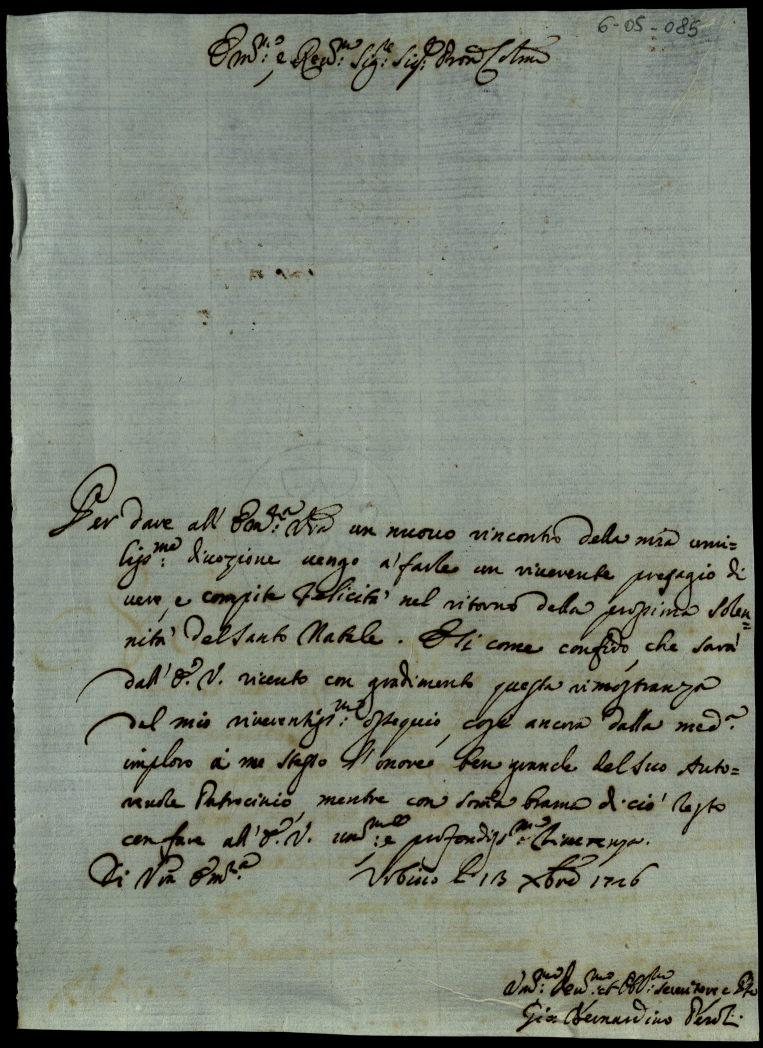 6-05-085
Em.mo e Rev.mo Sig.re Sig.re Pron Colmo
Per dare all' Em.za Vra un nuovo rincontro della mia umi=
liss.ma divozione vengo a' farle un riverente presagio di
vere, e compite Felicità nel ritorno della prossima Solen=
nità del Santo Natale. E si come confido, che sarà
dall' E. V. ricevuto con gradimento questa rimostranza
del mio riverentiss.mo ossequio, così ancora dalla med.a
imploro à me stesso l'onore ben grande del suo Auto=
revole Patrocinio, mentre con somma brama di ciò resto
con fare all' E. V. um.ma e profondiss.ma Riverenza.
Di Vra Em.za Urbino li 13 Xbre 1726
Um.mo Dev.mo et Obl.mo servitore
Gio: Bernardino Peroli